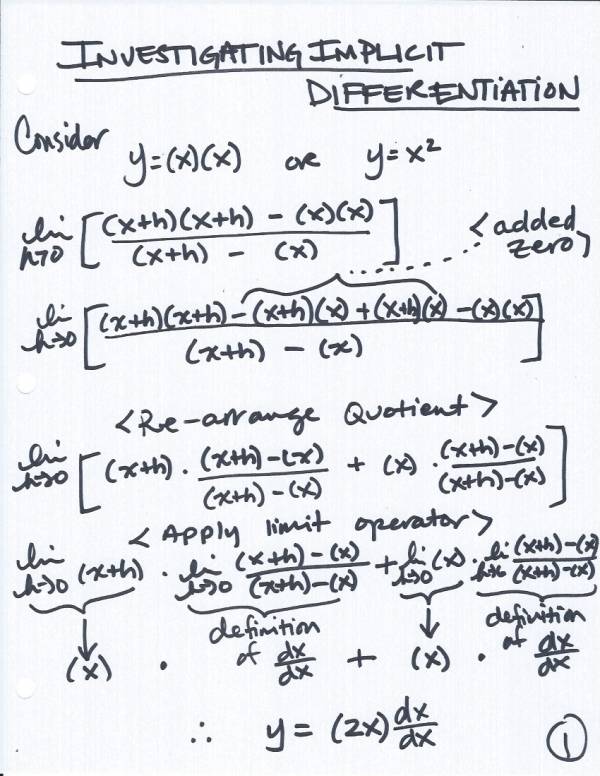 INVESTIGATING IMPLICIT
DIFFERENTIATION
Consider
y=(x)(x) or y=x²
lim h→0 [ ((x+h)(x+h) - (x)(x)) / ((x+h) - (x)) ]
<added zero>
lim h→0 [ ((x+h)(x+h) - (x+h)(x) + (x+h)(x) - (x)(x)) / ((x+h) - (x)) ]
<Re-arrange Quotient>
lim h→0 [ (x+h) · ((x+h)-(x)) / ((x+h)-(x)) + (x) · ((x+h)-(x)) / ((x+h)-(x)) ]
<Apply limit operator>
lim h→0 (x+h) · lim h→0 ((x+h)-(x)) / ((x+h)-(x)) + lim h→0 (x) · lim h→0 ((x+h)-(x)) / ((x+h)-(x))
definition of dx/dx
definition of dx/dx
(x) · + (x) ·
∴ y = (2x) dx/dx
1